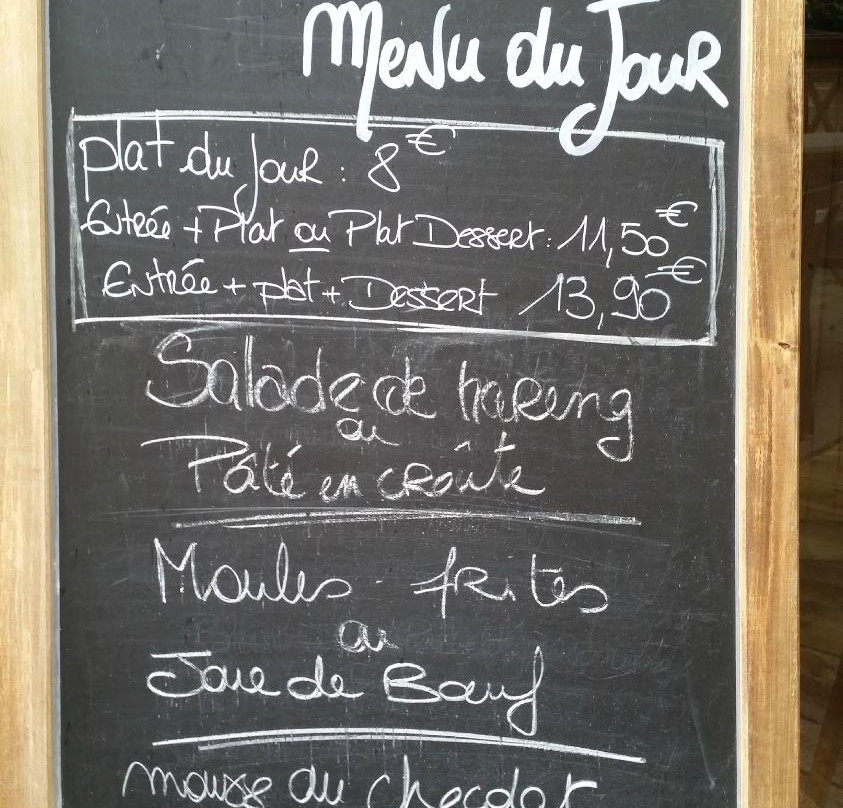 Menu du Jour
plat du jour : 8€
Entrée + Plat ou Plat Dessert : 11,50€
Entrée + plat + Dessert 13,90€
Salade de hareng
ou
Pâté en croûte
Moules - frites
ou
Joue de Bœuf
mousse au chocolat